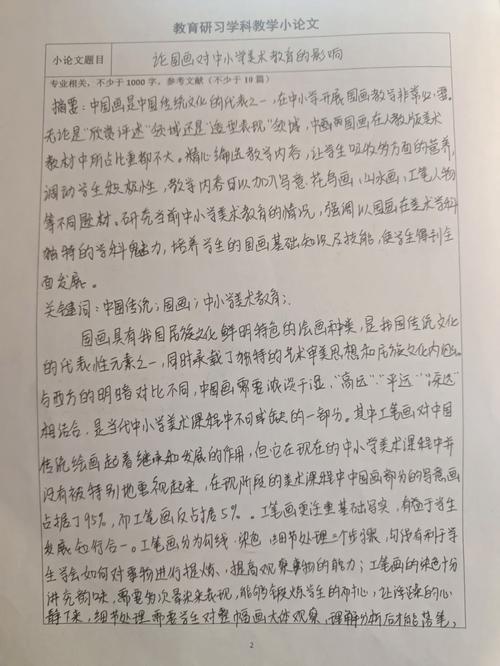 教育研习学科教学小论文
小论文题目 论国画对中小学美术教育的影响
专业相关，不少于 1000 字，参考文献（不少于 10 篇）
摘要：中国画是中国传统文化的代表之一，在中小学开展国画教学非常必要。
无论是“欣赏评述”领域还是“造型表现”领域，中画两国画在人教版美术
教材中所占比重都不大。精心编选教学内容，让学生吸收多方面的营养，
调动学生积极性，教学内容可以加入写意花鸟画，山水画，工笔人物
等不同题材。研究当前中小学美术教育的情况，强调以国画在美术学科
独特的学科魅力，培养学生的国画基础知识及技能，使学生得到全
面发展。
关键词：中国传统；国画；中小学美术教育；
国画具有我国民族文化鲜明特色的绘画种类，是我国传统文化
的代表性元素之一，同时承载了独特的艺术审美思想和民族文化内涵。
与西方的明暗对比不同，中国画需要浓淡干湿，“高远”“平远”“深远”
相结合，是当代中小学美术课程中不可或缺的一部分。其中工笔画对中国
传统绘画起着继承和发展的作用，但它在现在的中小学美术课程中并
没有被特别地重视起来，在现阶段的美术课程中中国画部分的写意画
占据了95%，而工笔画仅占据5%。工笔画更注重基础写实，有益于学生
发展知行合一。工笔画分为勾线、染色、细节处理三个步骤，勾线有利于学
生学会如何对事物进行提炼、提高观察事物的能力；工笔画的染色十分
讲究韵味，需要多次晕染来表现，能够锻炼学生的耐心，让浮躁的心
静下来，细节处理需要学生对整幅画大体观察，理解分析后才能落笔，
2